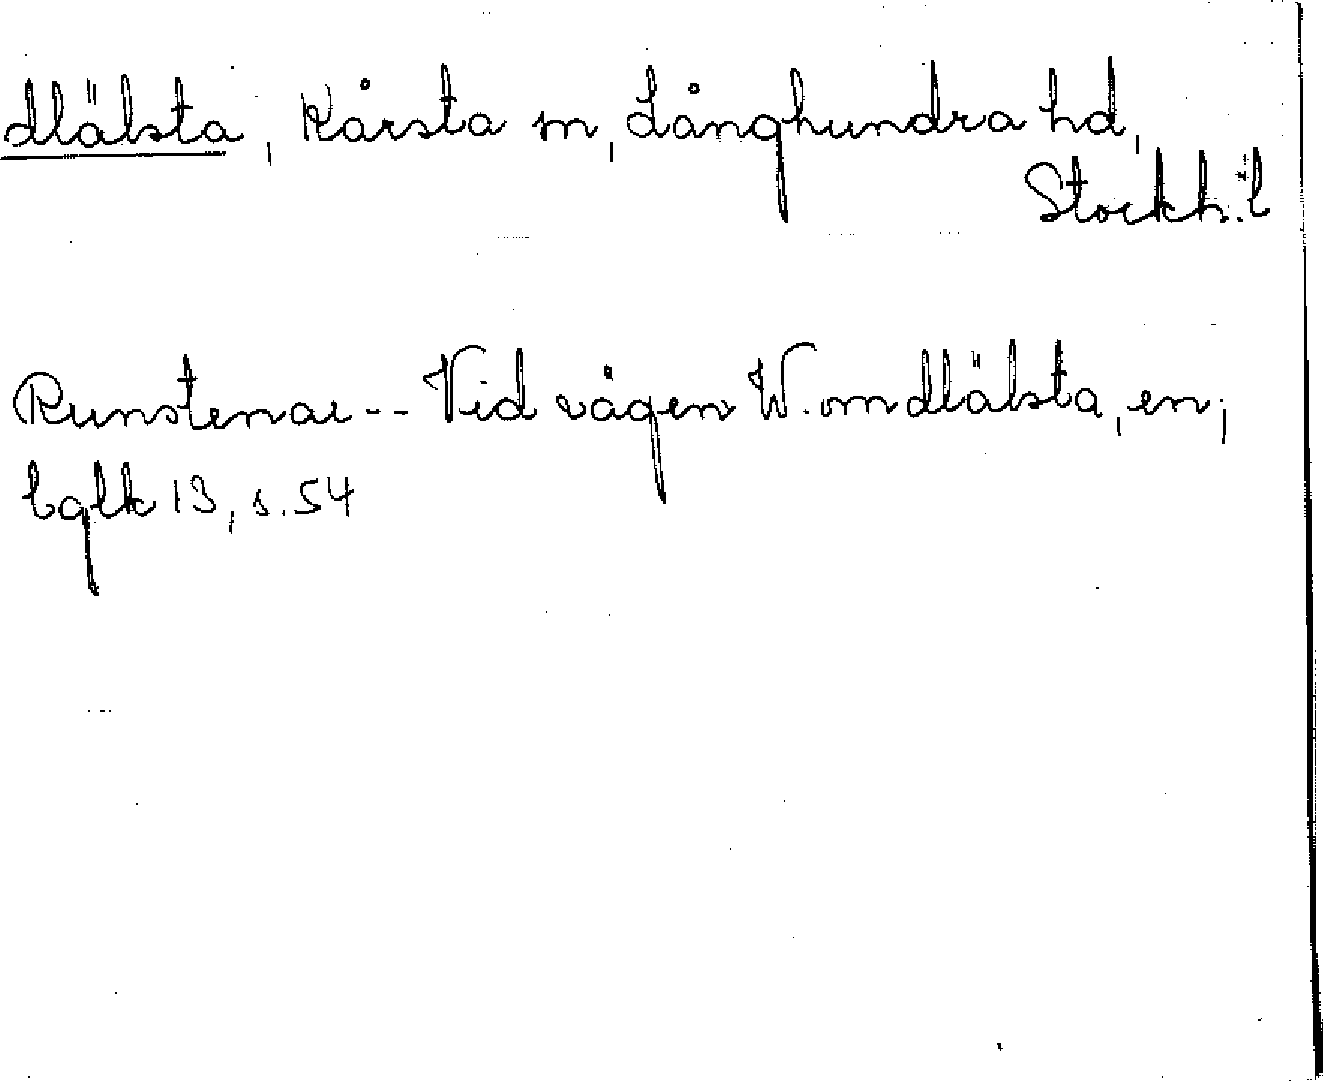 Mälsta, Kårsta sn, Långhundra hd,
Stockh:l
Runstenar -- Vid vägen W. om Mälsta, en;
bglk 13, s. 54